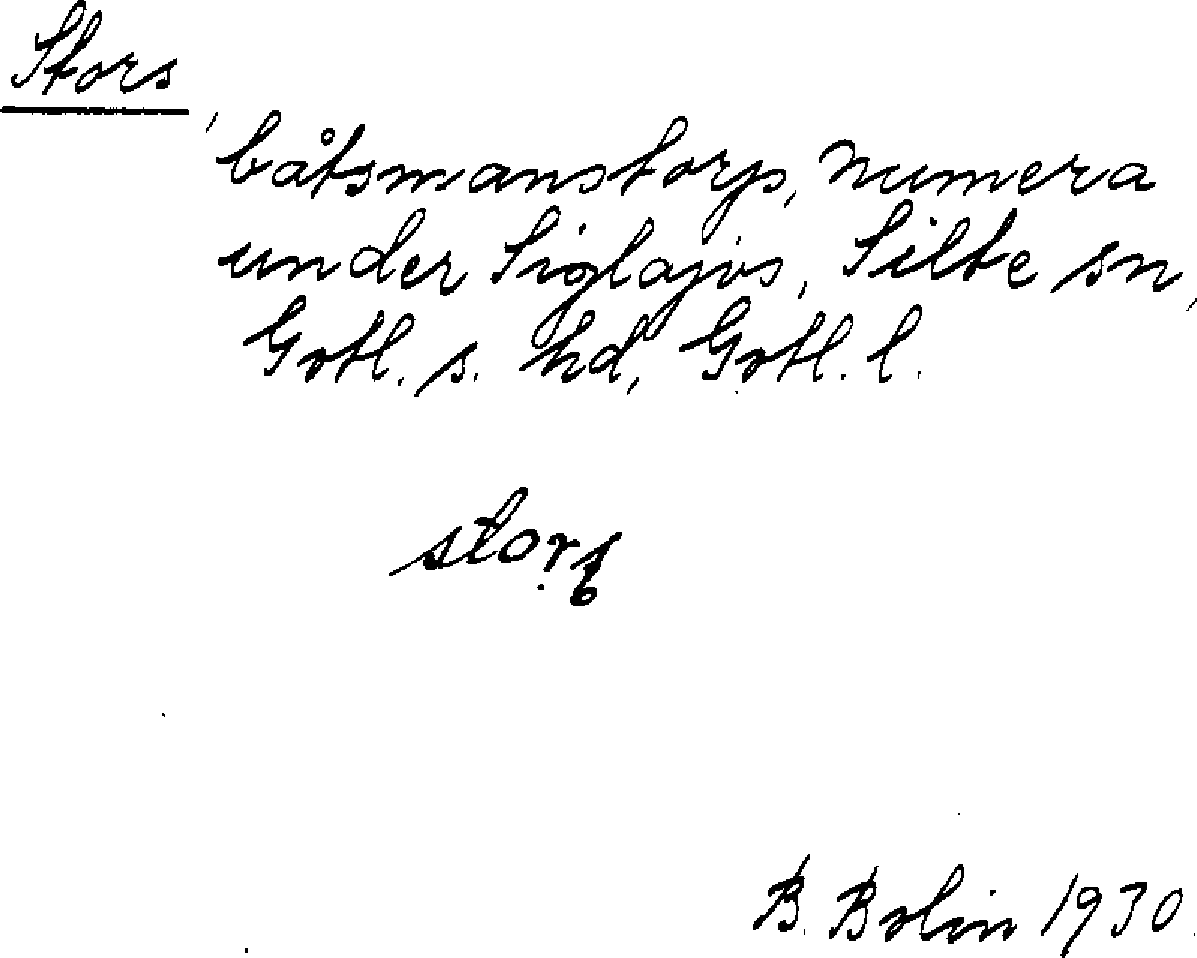 Stors,
båtsmanstorp, numera
under Siglajvs, Silte sn,
Gotl. s. hd, Gotl. l.
B. Bolin 1930.